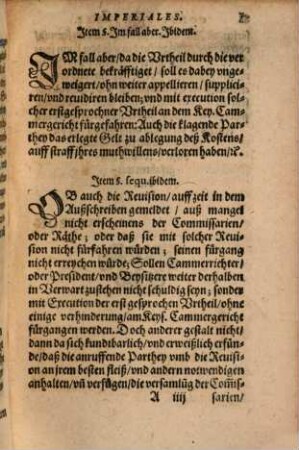 IMPERIALES.
Item §. Im fall aber. Ibidem.
IM fall aber/da die Vrtheil durch die ver
ordnete bekräfftiget / soll es dabey vnge-
weigert/ohn weiter appellieren / supplicie-
ren/vnd reuidiren bleiben; vnd mit execution sol-
cher erstgesprochner Vrtheil an dem Key. Cam-
mergericht fürgefahren: Auch die klagende Par-
they das erlegte Gelt zu ablegung deß Kostens/
auff straff ihres muthwillens/verloren haben/ꝛc.
Item §. sequ. ibidem.
OB auch die Reuision/auff zeit in dem
Außschreiben gemeldet / auß mangel
nicht erscheinens der Commissarien/
oder Räthe; oder daß sie mit solcher Reuision
nicht fürfahren würden; seinen fürgang
nicht erreychen würde; Sollen Cammerrichter/
oder President/vnd Beysitzere weiter derhalben
in Verwart zustehen nicht schuldig seyn; sonder
mit Execution der erst gesprochen Vrtheil/ohne
einige verhinderung/am Keys. Cammergericht
fürgangen werden. Doch anderer gestalt nicht/
dann da sich kundtbarlich/vnd erweißlich erfün-
de/daß die anruffende Parthey vmb die Reuisi-
on an jrem besten fleiß/vnd andern notwendigen
anhalten/vñ verfügen/die versamlũg der Com̃is-
A iiij sarien/